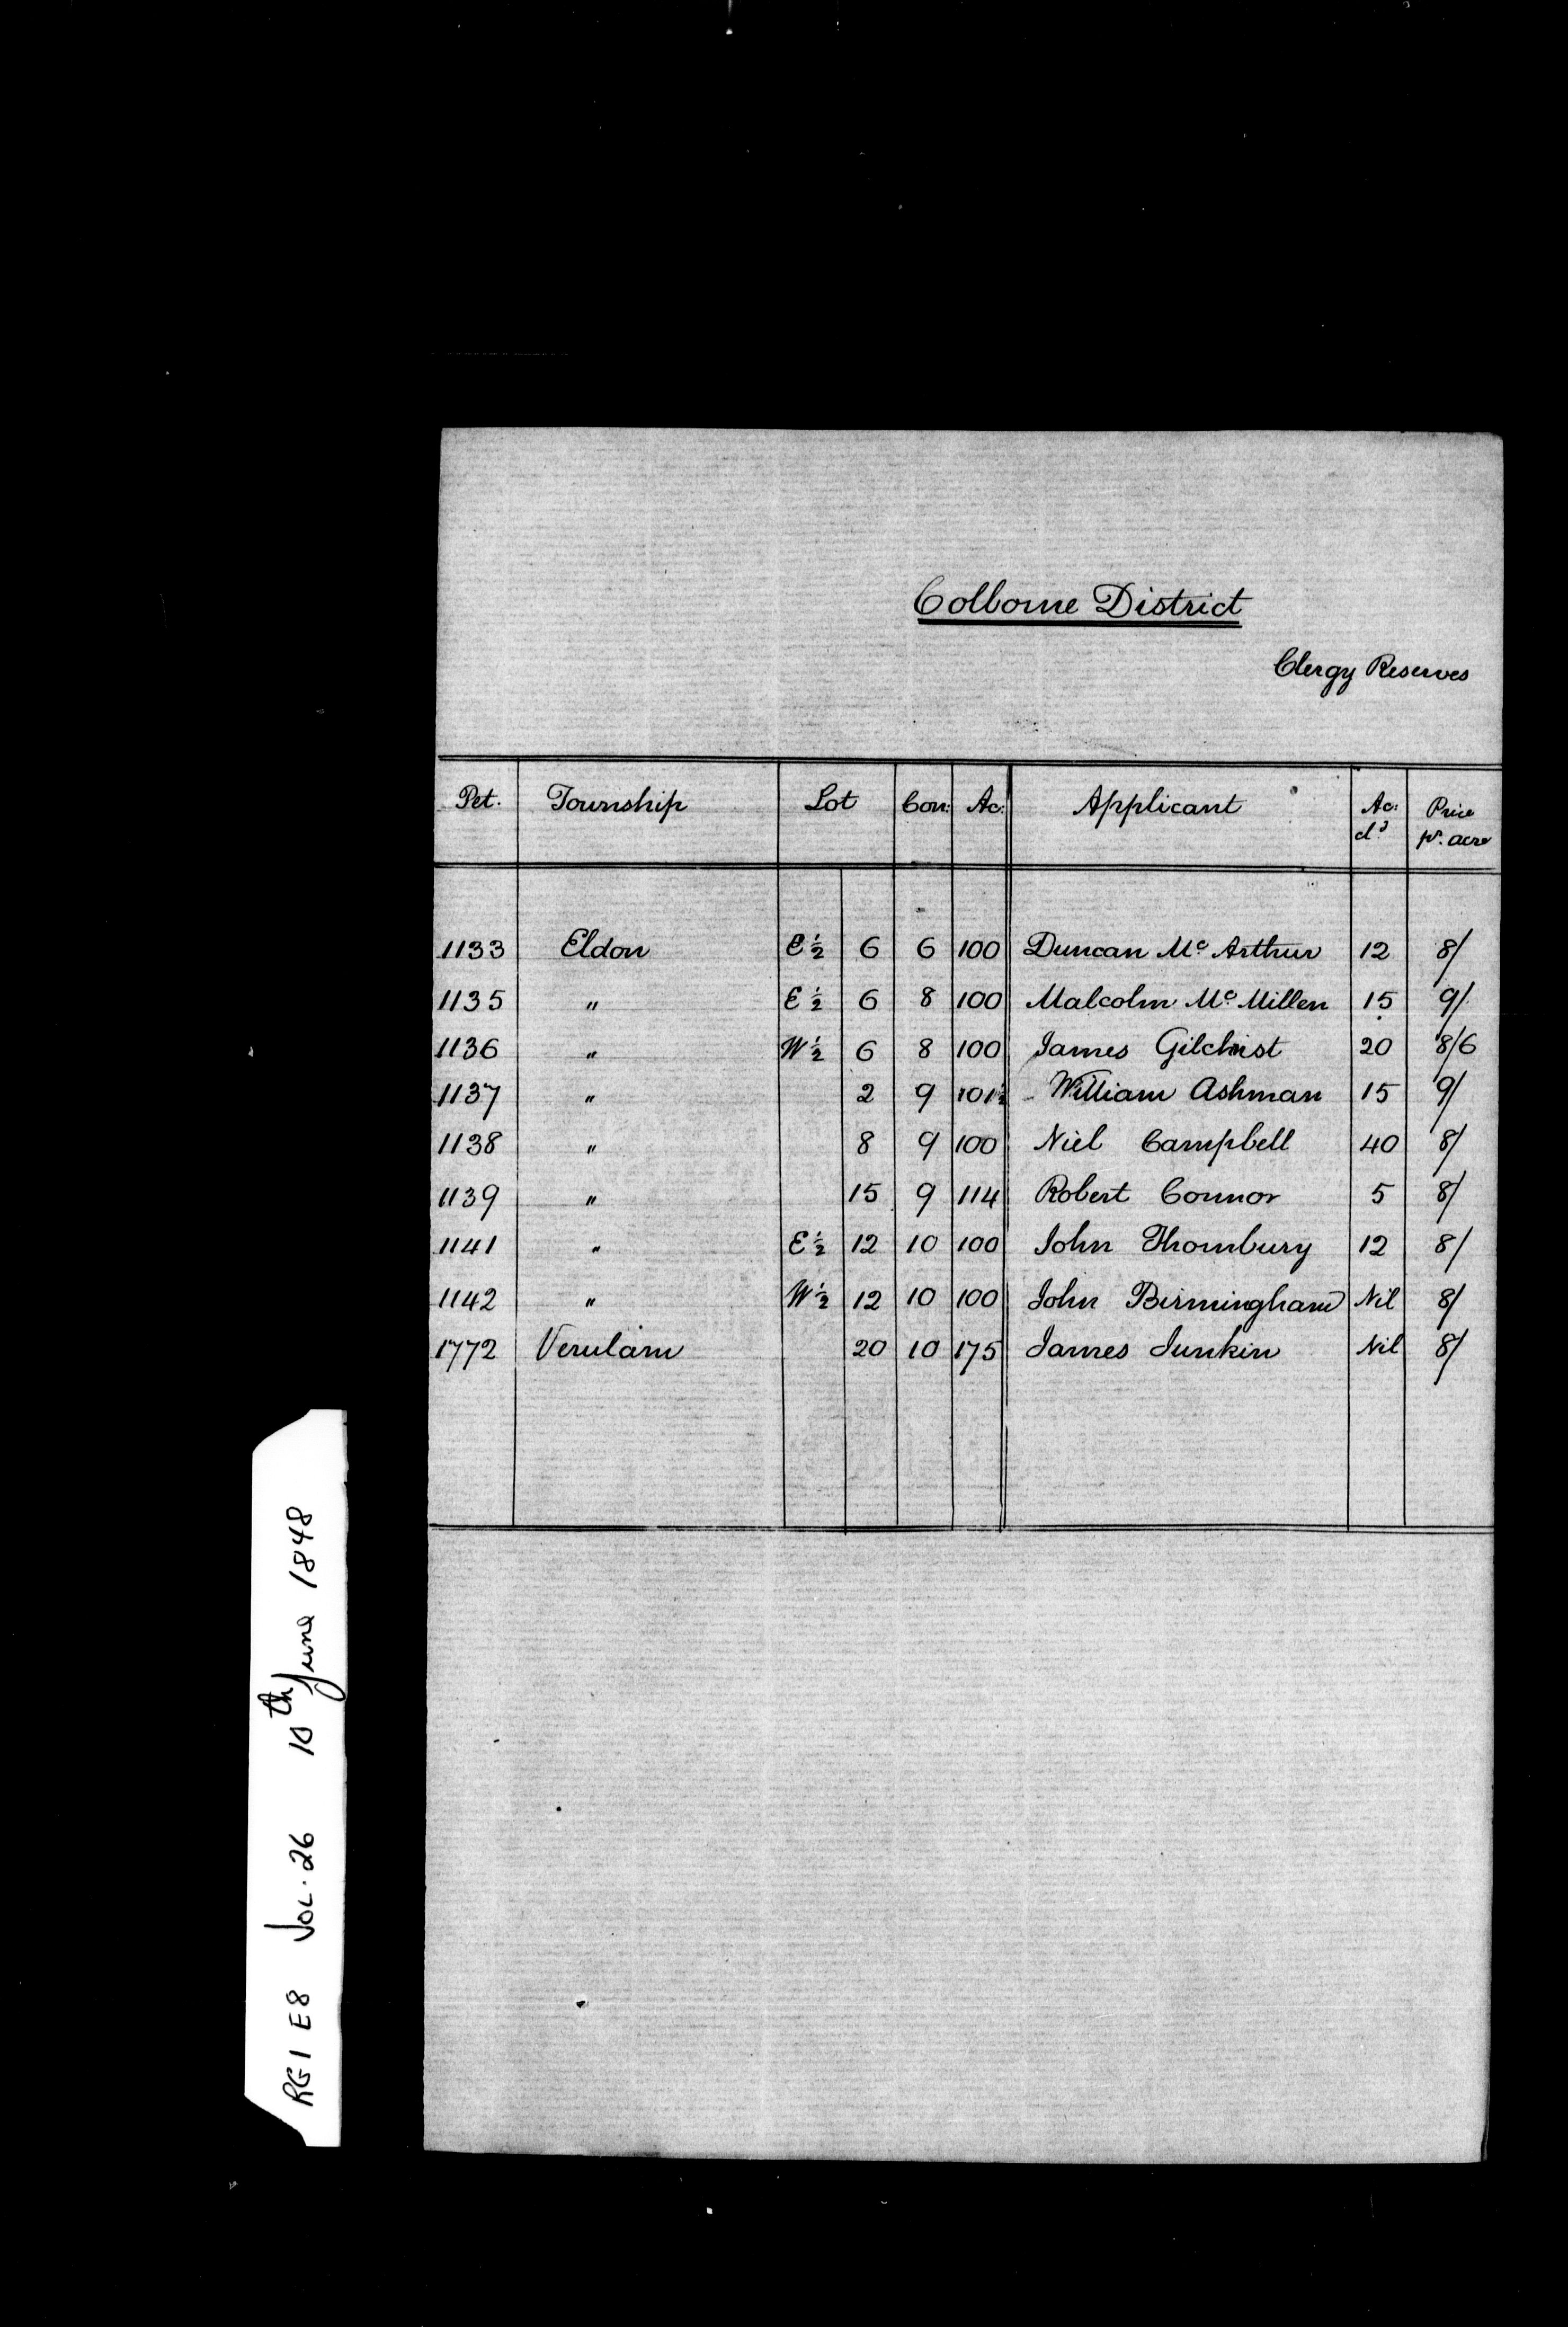 Colborne District
Clergy Reserves
Pet. Township Lot Con: Ac: Applicant Ac: cl^d Price pr. acre
1133 Eldon E ½ 6 6 100 Duncan Mc Arthur 12 8/
1135 " E ½ 6 8 100 Malcolm Mc Millen 15 9/
1136 " W ½ 6 8 100 James Gilchrist 20 8/6
1137 " 2 9 101½ William Ashman 15 9/
1138 " 8 9 100 Niel Campbell 40 8/
1139 " 15 9 114 Robert Connor 5 8/
1141 " E ½ 12 10 100 John Thornbury 12 8/
1142 " W ½ 12 10 100 John Birmingham Nil 8/
1772 Verulam 20 10 175 James Junkin Nil 8/
RG1 E8 Vol. 26 10th June 1848